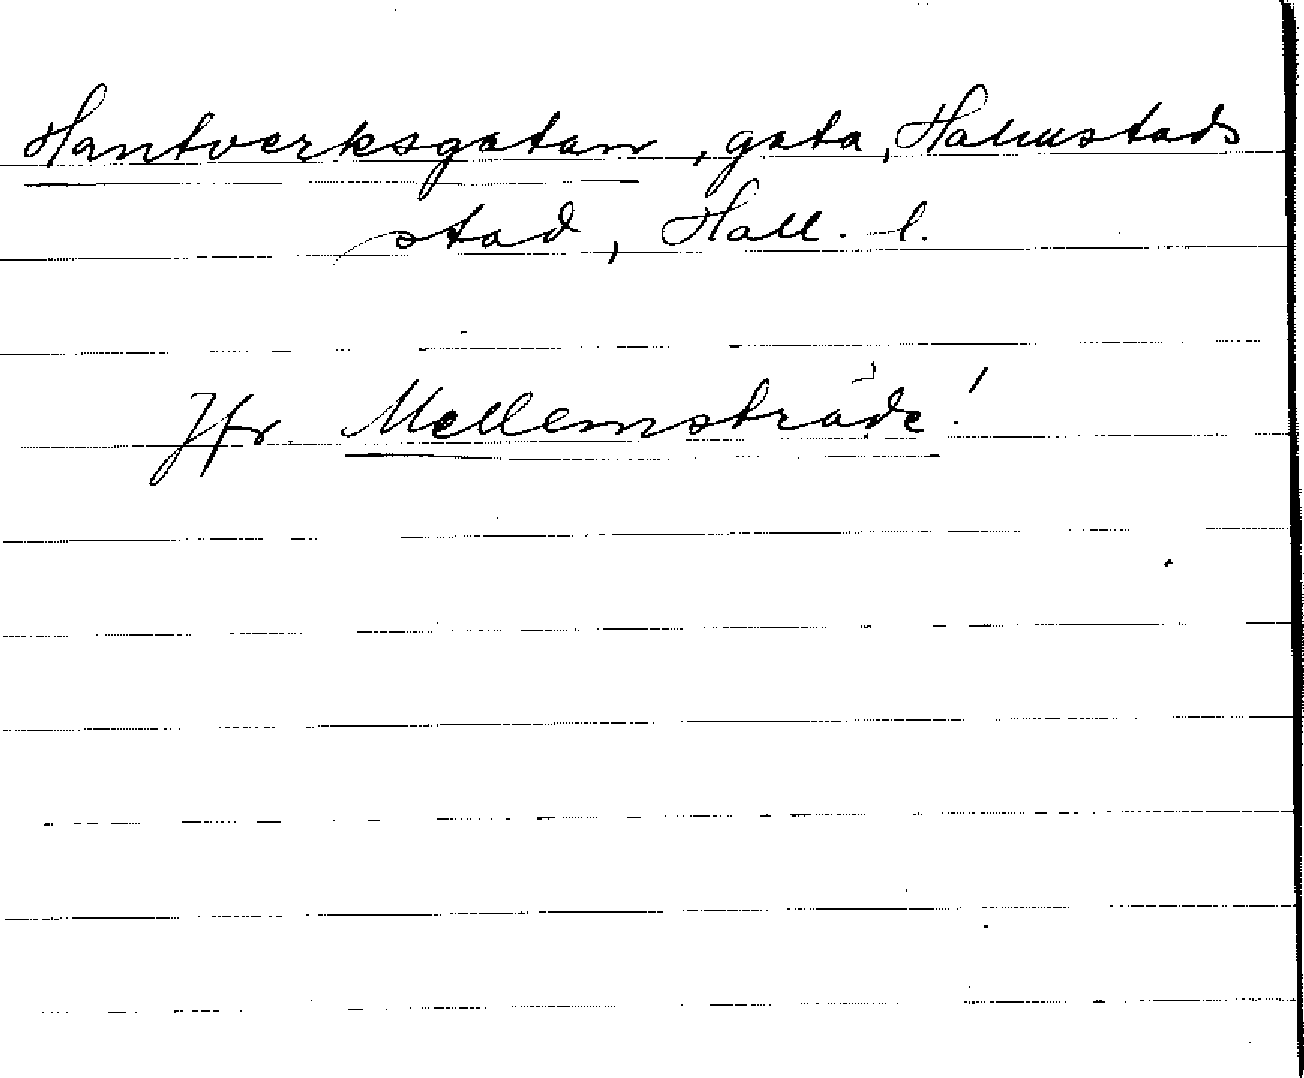 Hantverksgatan, gata, Halmstads
stad, Hall. l.
Jfr Mellemstrade!